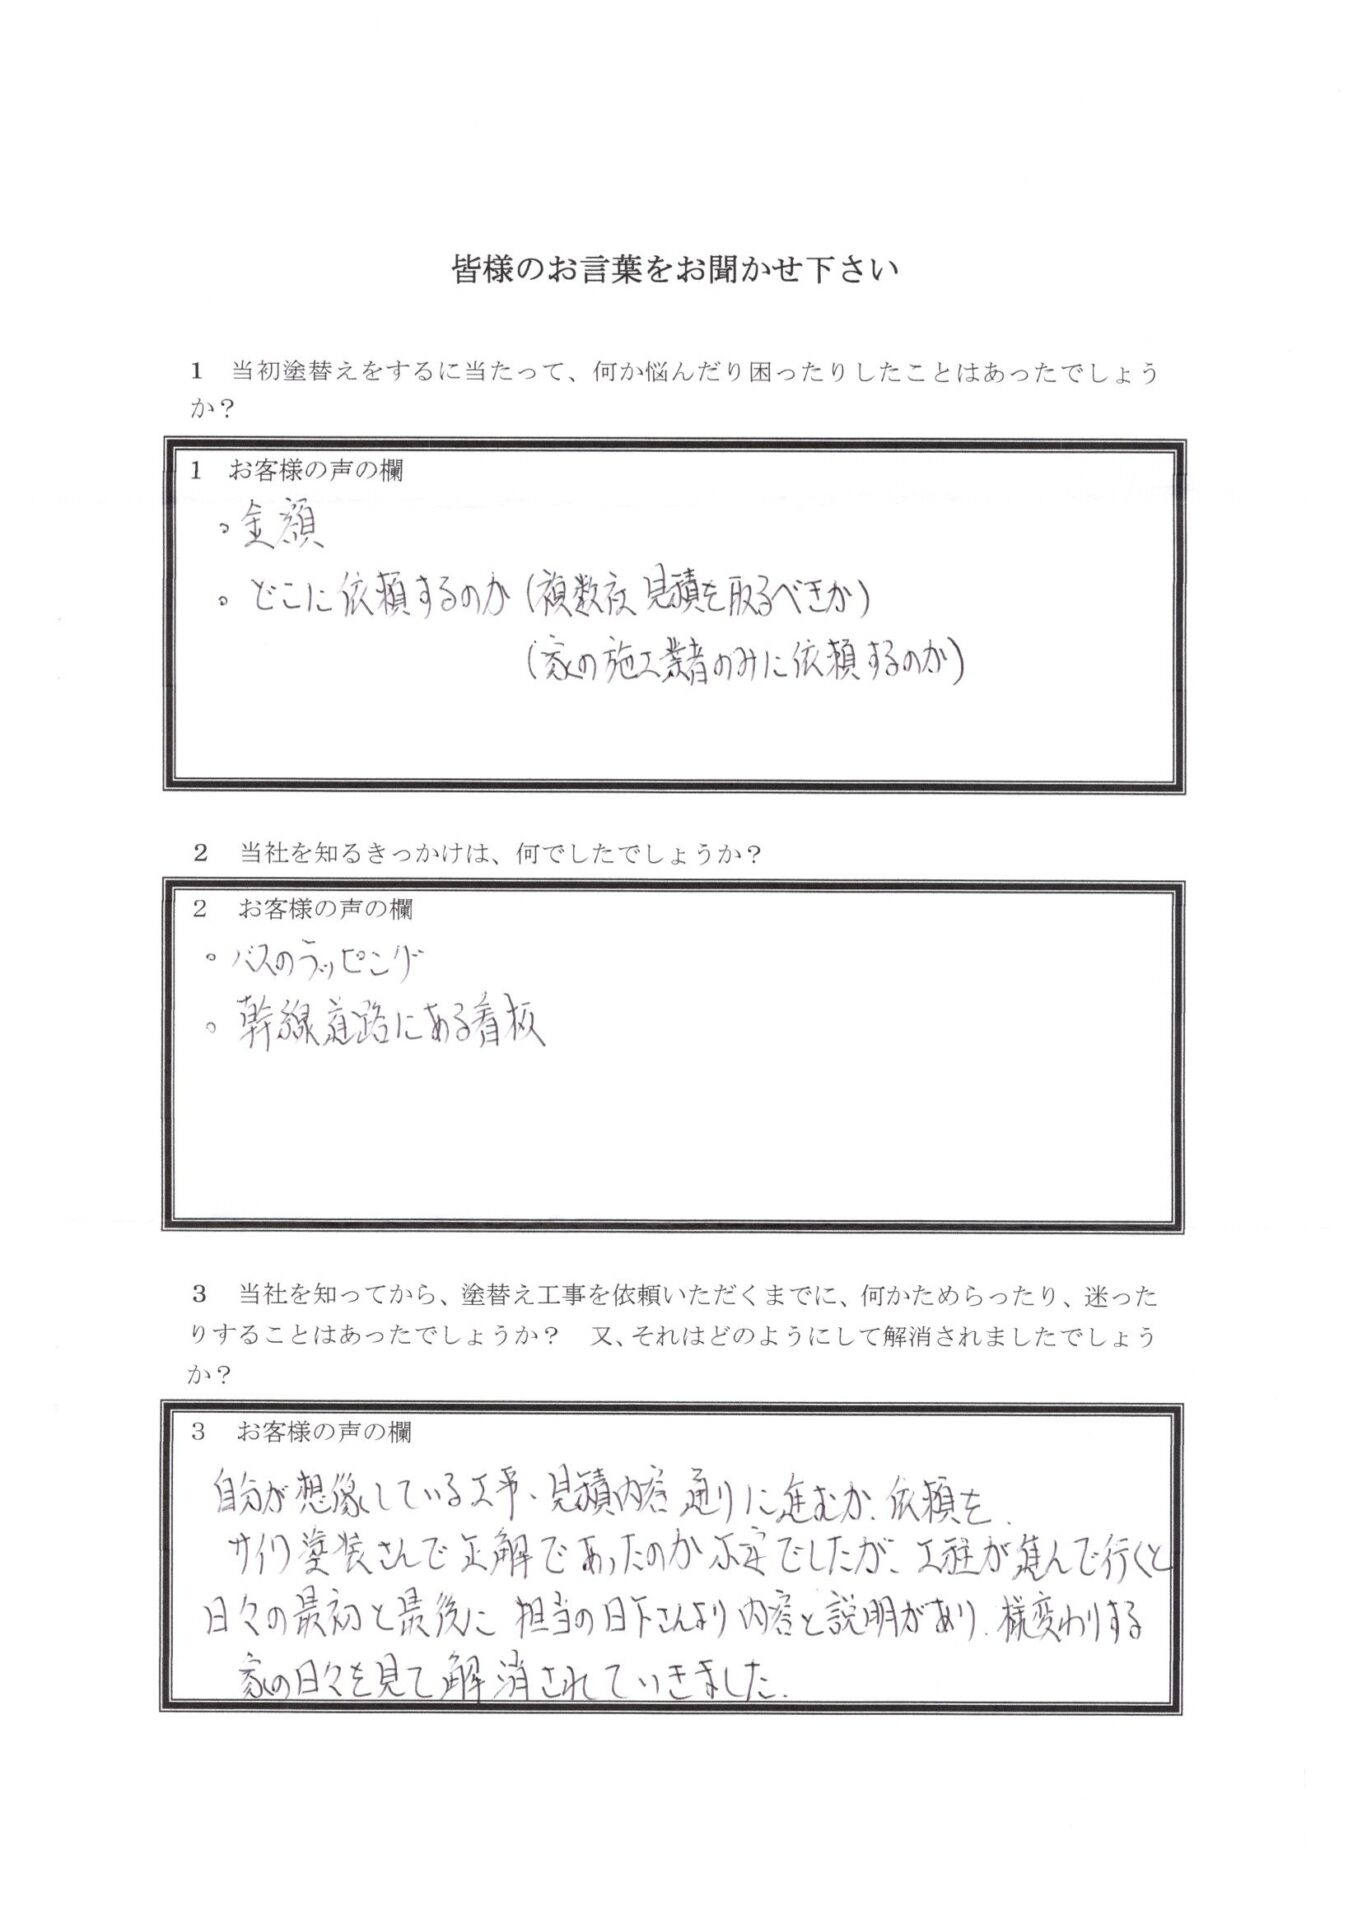 皆様のお言葉をお聞かせ下さい
1 当初塗替えをするに当たって、何か悩んだり困ったりしたことはあったでしょう
か？
1 お客様の声の欄
。金額
。どこに依頼するのか(複数店見積を取るべきか)
(家の施工業者のみに依頼するのか)
2 当社を知るきっかけは、何でしたでしょうか？
2 お客様の声の欄
。バスのラッピング
。幹線道路にある看板
3 当社を知ってから、塗替え工事を依頼いただくまでに、何かためらったり、迷った
りすることはあったでしょうか？ 又、それはどのようにして解消されましたでしょう
か？
3 お客様の声の欄
自分が想像している工事、見積内容通りに進むか、依頼を、
サイワ塗装さんで正解であったのか不安でしたが、工程が進んで行くと
日々の最初と最後に担当の日下さんより内容と説明があり、様変わりする
家の日々を見て解消されていきました.